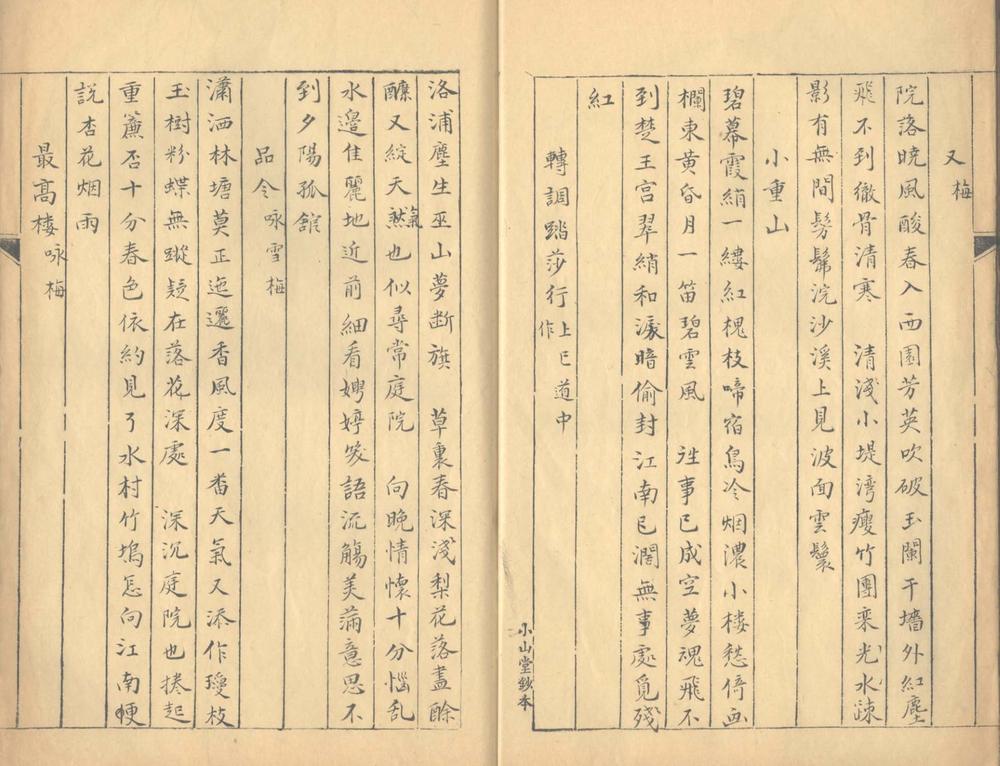 又梅
院落曉風酸春入西園芳英吹破玉闌干墻外紅塵
飛不到徹骨清寒　清淺小堤灣瘦竹團欒光水疎
影有無間髣髴浣沙溪上見波面雲鬟
小重山
碧幕霞綃一縷紅槐枝啼宿鳥冷烟濃小楼愁倚画
欄東黄昏月一笛碧雲風　徃事已成空夢魂飛不
到楚王宫翠綃和淚暗偷封江南已濶無事處覓殘
紅
轉調踏莎行上巳道中作
小山堂鈔本
洛浦塵生巫山夢断旗　草裏春深淺梨花落盡酴
醿又綻天氣然也似尋常庭院　向晚情懷十分惱乱
水邊佳麗地近前細看娉婷笑語流觴美滿意思不
到夕陽孤舘
品令咏雪梅
瀟洒林塘莫正迤邐香風度一畨天氣又添作瓊枝
玉樹粉蝶無蹤疑在落花深處　深沉庭院也捲起
重簾否十分春色依約見了水村竹塢怎向江南㪅
説杏花烟雨
最髙楼咏梅